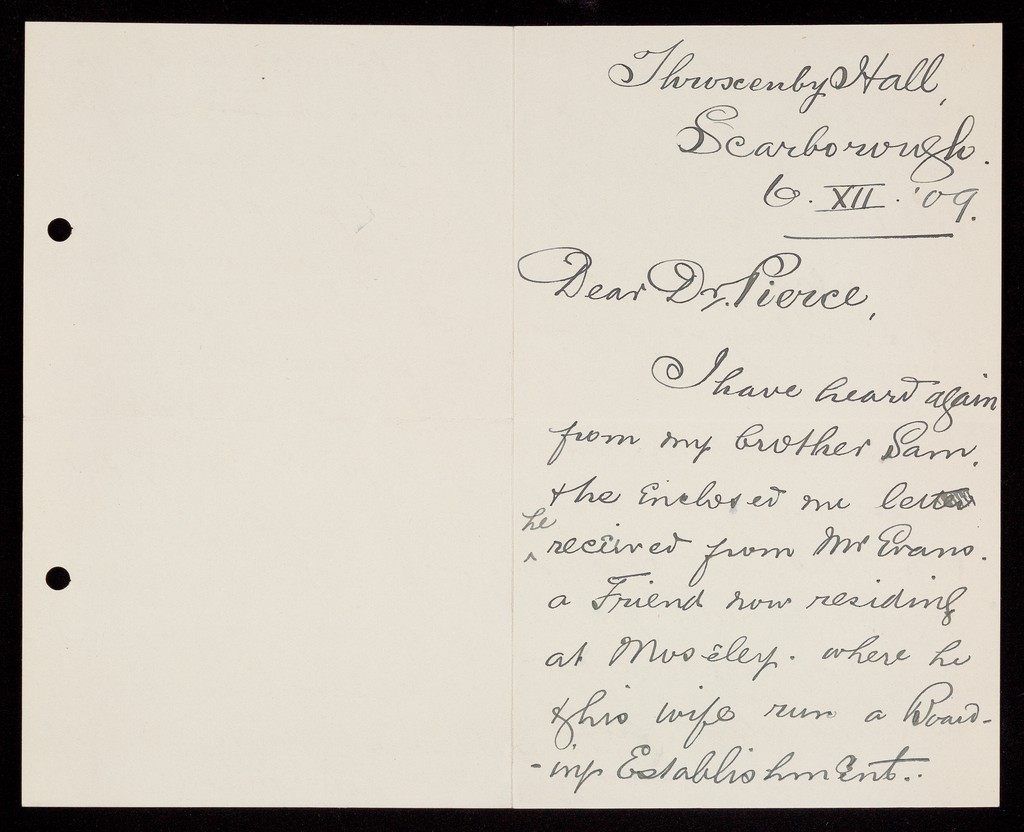 Throxenby Hall,
Scarborough.
6. XII. '09.
Dear Dr. Pierce,
I have heard again
from my brother Sam,
& he Enclosed me letter
he
^ received from Mr Evans.
a Friend now residing
at Moseley. where he
& his wife run a Board-
-ing Establishment..